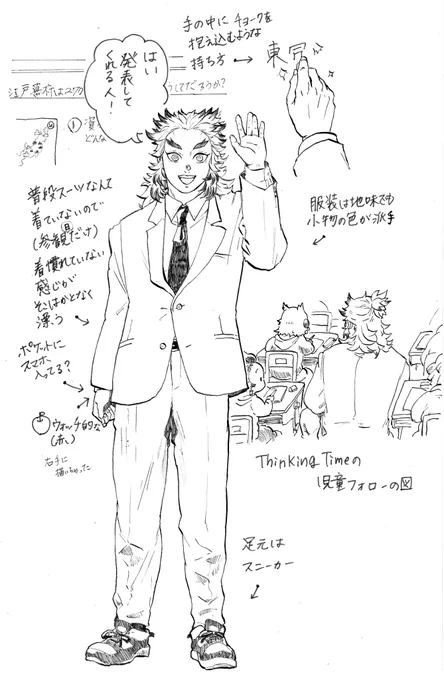 手の中に チョークを
抱え込むような
持ち方
東京
はい
発表して
くれる人!
江戸幕府は
してだろうか?
①
どんな
普段スーツなんて
着ていないので
(参観日だけ)
着慣れていない
感じが
そこはかとなく
漂う
服装は地味でも
小物の色が派手
ポケットに
スマホ
入ってる?
ウォッチ的な
(赤い)
右手に
描いちゃった
Thinking Timeの
児童フォローの図
足元は
スニーカー